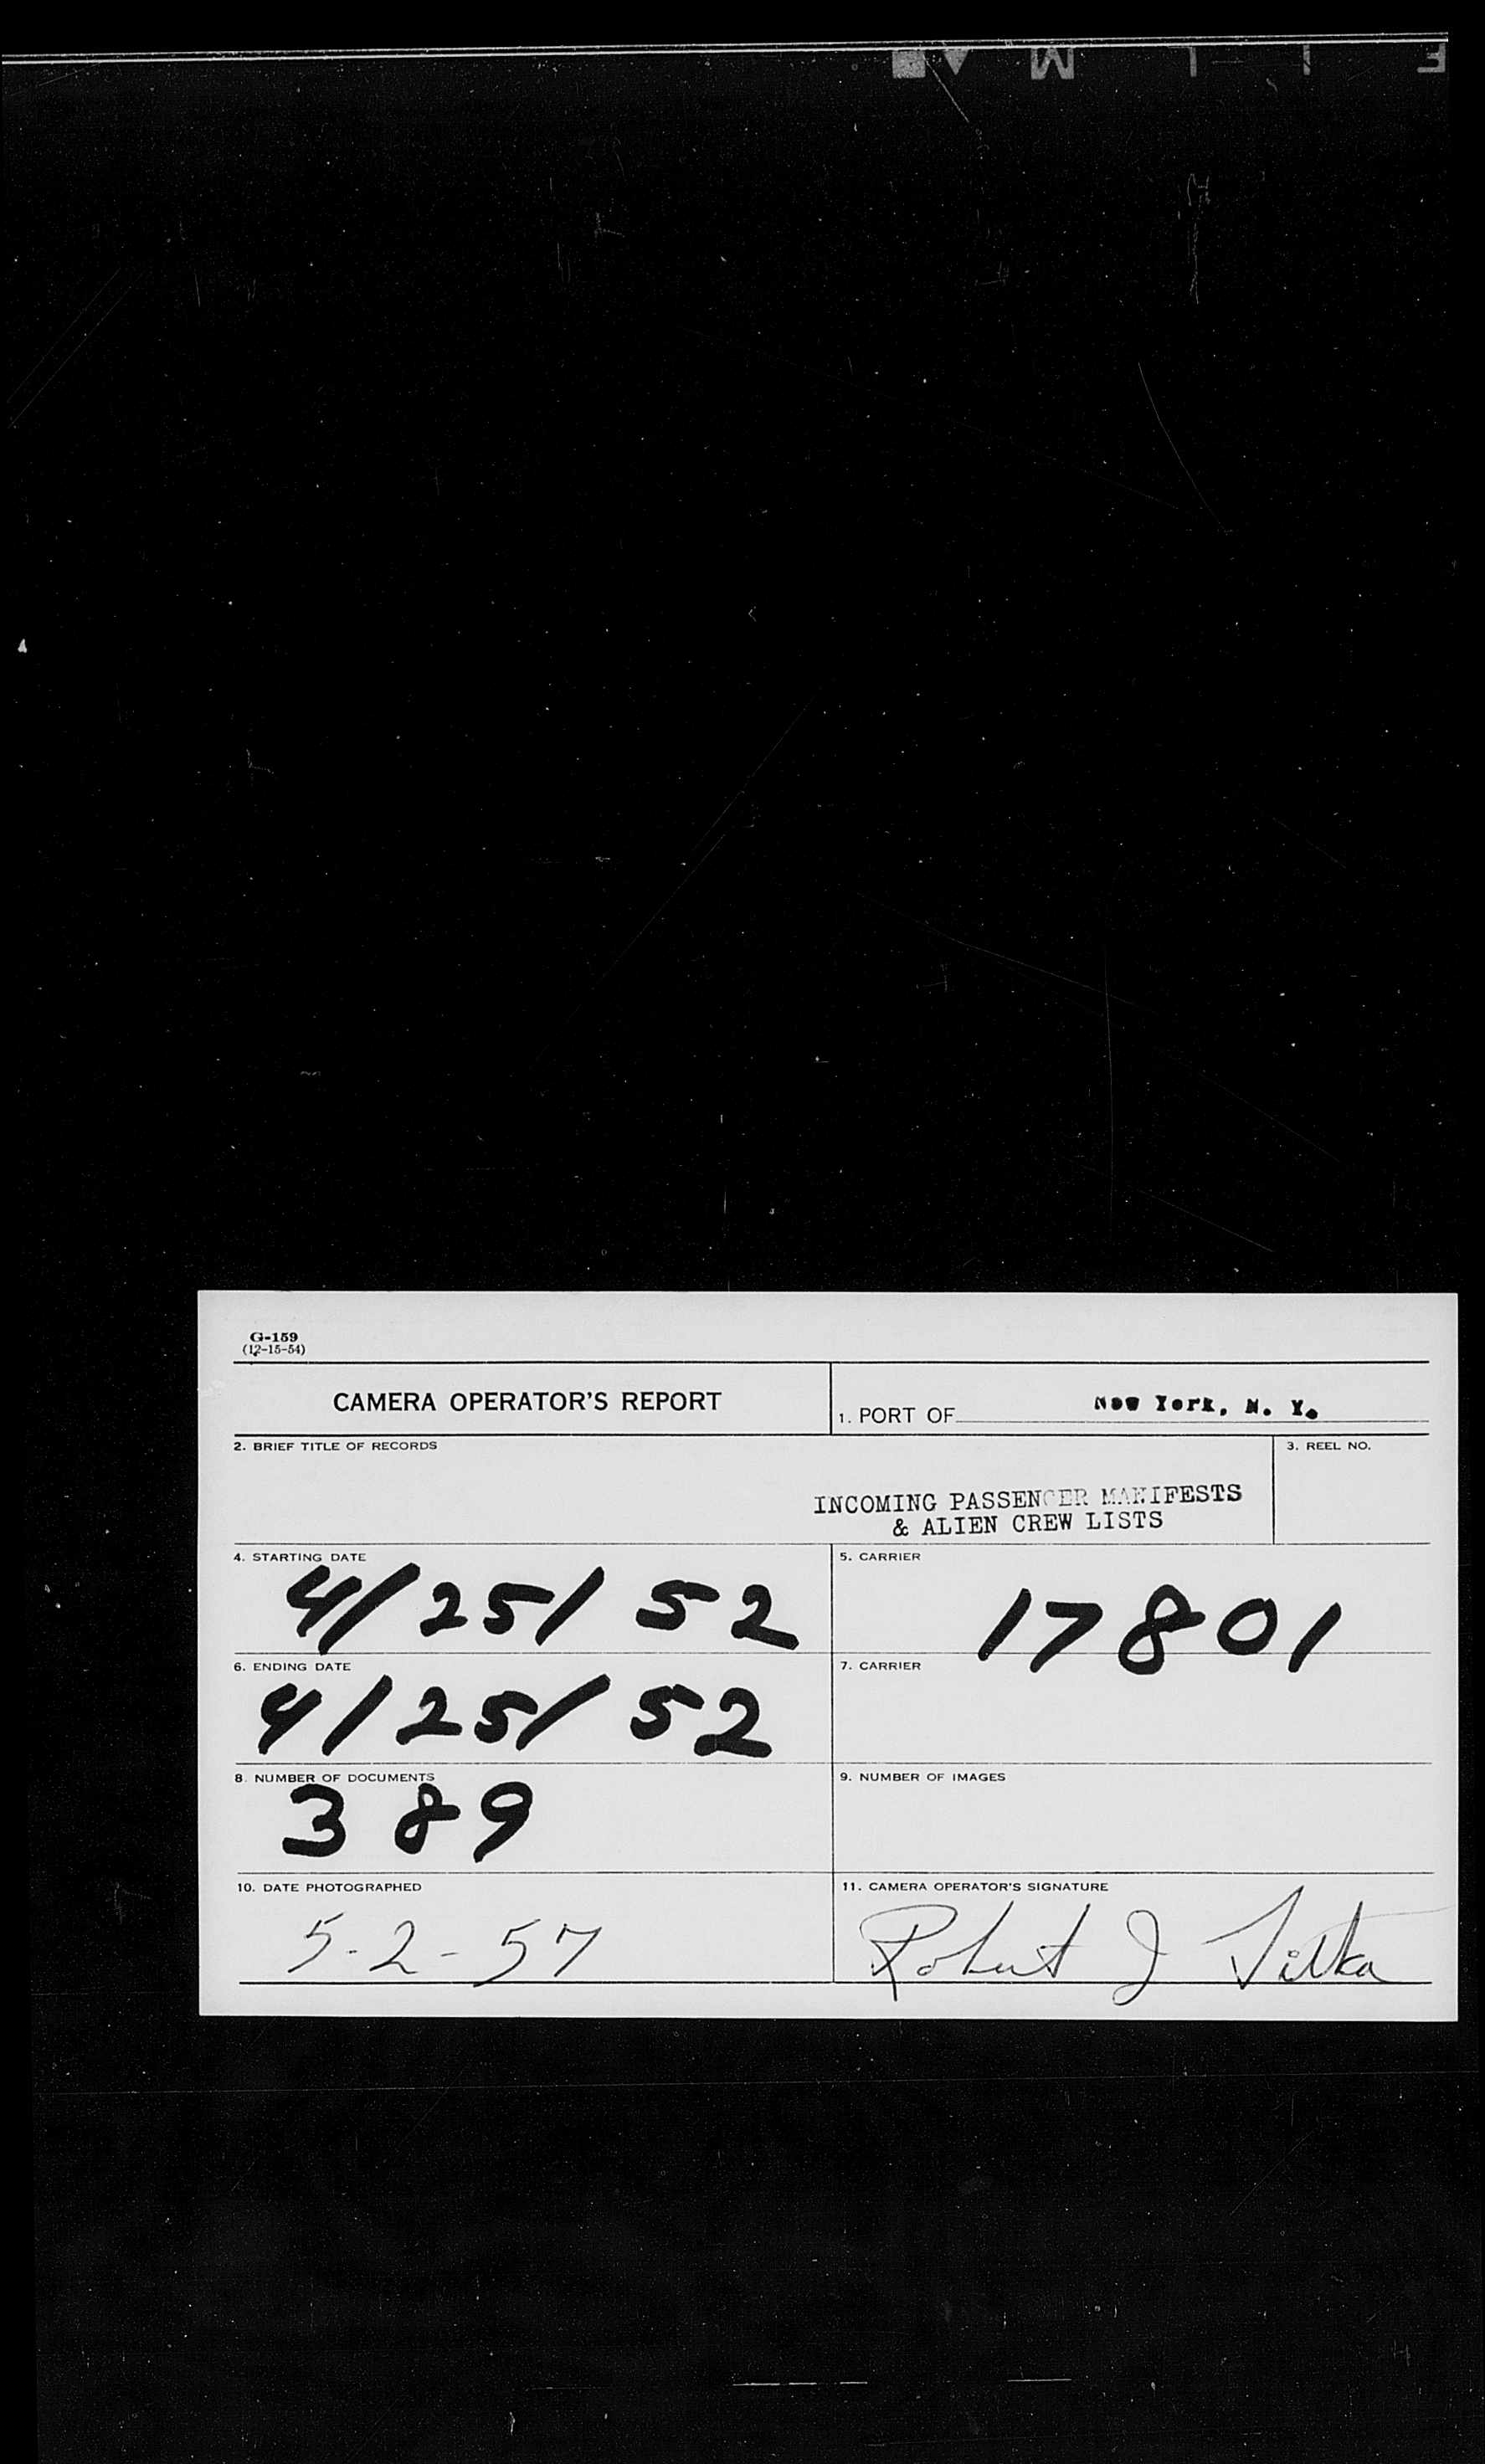 G-159
(12-15-54)
CAMERA OPERATOR'S REPORT
1. PORT OF New York, N. Y.
2. BRIEF TITLE OF RECORDS
3. REEL NO.
INCOMING PASSENGER MANIFESTS
& ALIEN CREW LISTS
4. STARTING DATE
4/25/52
5. CARRIER
17801
6. ENDING DATE
4/25/52
7. CARRIER
8. NUMBER OF DOCUMENTS
389
9. NUMBER OF IMAGES
10. DATE PHOTOGRAPHED
5-2-57
11. CAMERA OPERATOR'S SIGNATURE
Robert J